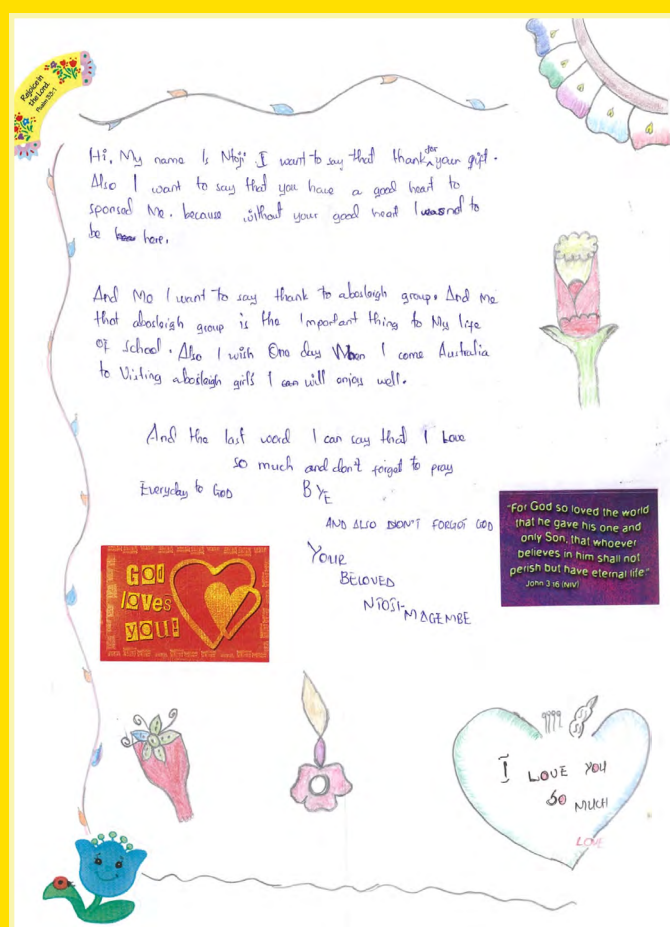 Rejoice in
the Lord
Psalm 33:1
Hi, My name Is Ntoji I want to say that thank for your gift.
Also I want to say that you have a good heart to
sponsed Me. because without your good heart I was not to
be here.
And Me I want to say thank to abosleigh group. And me
that abosleigh group is the Important thing to My life
of school. Also I wish One day When I come Australia
to Visting abosleigh girls I can will enjoy well.
And the last word I can say that I Love
so much and don't forgot to pray
Everyday to GOD
BYE
AND ALSO DIDN'T FORGOT GOD
YOUR
BELOVED
NTOJI-MAGEMBE
GOD
loves
you!
"For God so loved the world
that he gave his one and
only Son, that whoever
believes in him shall not
perish but have eternal life."
John 3:16 (NIV)
I LOVE YOU
SO MUCH
LOVE